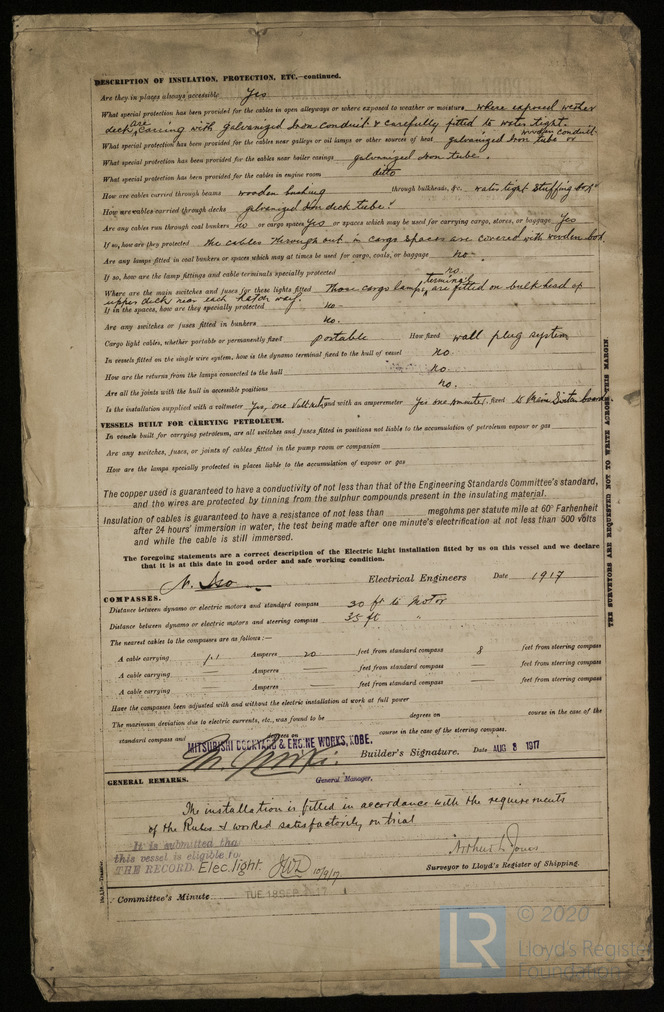 DESCRIPTION OF INSULATION, PROTECTION, ETC.—continued.
Are they in places always accessible Yes
What special protection has been provided for the cables in open alleyways or where exposed to weather or moisture where exposed wether
deck, are Caring with Galvanized Iron Conduit & carefully fitted to water tight.
What special protection has been provided for the cables near galleys or oil lamps or other sources of heat galvanized Iron tube or wooden conduit.
What special protection has been provided for the cables near boiler casings galvanized Iron tube.
What special protection has been provided for the cables in engine room ditto
How are cables carried through beams wooden bushing through bulkheads, &c. water tight Stuffing box
How are cables carried through decks galvanized Iron deck tube
Are any cables run through coal bunkers no or cargo spaces Yes or spaces which may be used for carrying cargo, stores, or baggage Yes
If so, how are they protected the cables through out in cargo spaces are covered with wooden bod
Are any lamps fitted in coal bunkers or spaces which may at times be used for cargo, coals, or baggage no.
If so, how are the lamp fittings and cable terminals specially protected no
Where are the main switches and fuses for these lights fitted Those cargo lamps terminal are fitted on bulkhead of
upper deck near each hatch way.
If in the spaces, how are they specially protected no
Are any switches or fuses fitted in bunkers no.
Cargo light cables, whether portable or permanently fixed portable How fixed wall plug system
In vessels fitted on the single wire system, how is the dynamo terminal fixed to the hull of vessel no.
How are the returns from the lamps connected to the hull no.
Are all the joints with the hull in accessible positions no.
Is the installation supplied with a voltmeter Yes, one Voltmeter, and with an amperemeter Yes one Ammeter, fixed to Main Switch board
VESSELS BUILT FOR CARRYING PETROLEUM.
In vessels built for carrying petroleum, are all switches and fuses fitted in positions not liable to the accumulation of petroleum vapour or gas
Are any switches, fuses, or joints of cables fitted in the pump room or companion
How are the lamps specially protected in places liable to the accumulation of vapour or gas
The copper used is guaranteed to have a conductivity of not less than that of the Engineering Standards Committee's standard,
and the wires are protected by tinning from the sulphur compounds present in the insulating material.
Insulation of cables is guaranteed to have a resistance of not less than megohms per statute mile at 60° Farhenheit
after 24 hours' immersion in water, the test being made after one minute's electrification at not less than 500 volts
and while the cable is still immersed.
The foregoing statements are a correct description of the Electric Light installation fitted by us on this vessel and we declare
that it is at this date in good order and safe working condition.
N. Iso Electrical Engineers Date 1917
COMPASSES.
Distance between dynamo or electric motors and standard compass 30 ft to Motor
Distance between dynamo or electric motors and steering compass 35 ft "
The nearest cables to the compasses are as follows:—
A cable carrying 1.1 Amperes 20 feet from standard compass 8 feet from steering compass
A cable carrying — Amperes — feet from standard compass — feet from steering compass
A cable carrying — Amperes — feet from standard compass — feet from steering compass
Have the compasses been adjusted with and without the electric installation at work at full power
The maximum deviation due to electric currents, etc., was found to be degrees on course in the case of the
standard compass and degrees on course in the case of the steering compass.
MITSUBISHI DOCKYARD & ENGINE WORKS, KOBE.
Builder's Signature. Date AUG 8 1917
General Manager.
GENERAL REMARKS.
The installation is fitted in accordance with the requirements
of the Rules & worked satisfactorily on trial
It is submitted that
this vessel is eligible to
THE RECORD. Elec. light. JWD 10/9/17
Arthur L. Jones
Surveyor to Lloyd's Register of Shipping.
Committee's Minute TUE. 18 SEP. 1917
THE SURVEYORS ARE REQUESTED NOT TO WRITE ACROSS THIS MARGIN
LR
© 2020
Lloyd's Register
Foundation